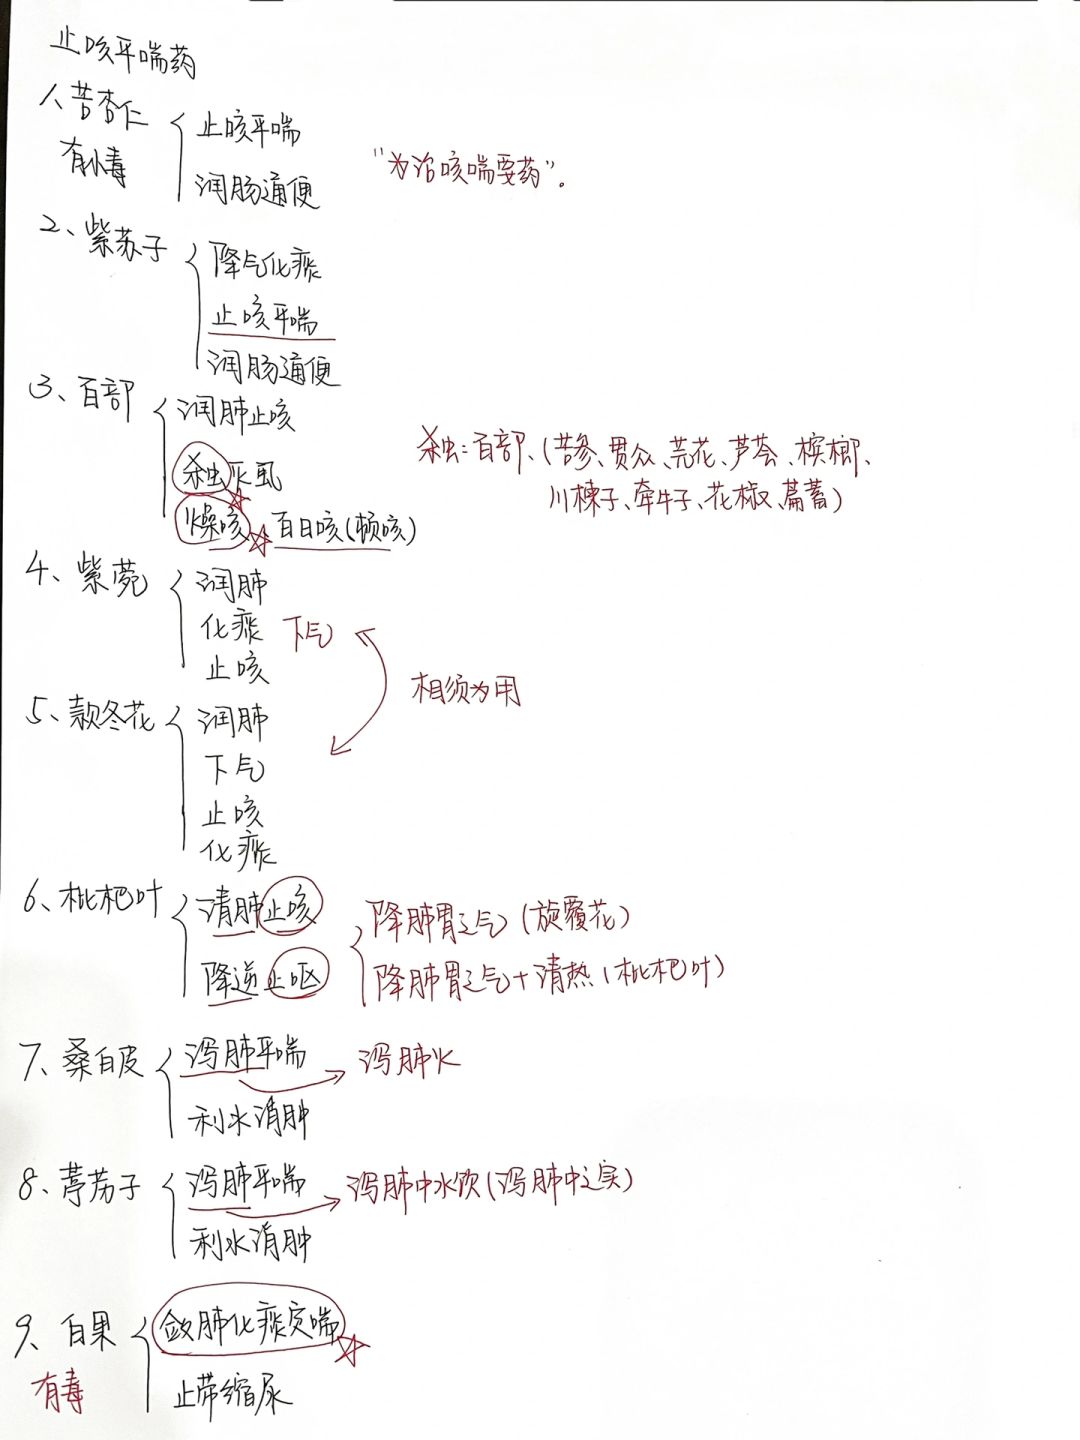 止咳平喘药
1、苦杏仁
有小毒
止咳平喘
润肠通便
“为治咳喘要药”。
2、紫苏子
降气化痰
止咳平喘
润肠通便
3、百部
润肺止咳
杀虫灭虱
燥咳 百日咳(顿咳)
杀虫:百部、(苦参、贯众、芫花、芦荟、槟榔、
川楝子、牵牛子、花椒、萹蓄)
4、紫菀
润肺
化痰 下气
止咳
相须为用
5、款冬花
润肺
下气
止咳
化痰
6、枇杷叶
清肺止咳
降逆止呕
降肺胃之气(旋覆花)
降肺胃之气+清热(枇杷叶)
7、桑白皮
泻肺平喘
泻肺火
利水消肿
8、葶苈子
泻肺平喘
泻肺中水饮(泻肺中之实)
利水消肿
9、白果
有毒
敛肺化痰定喘
止带缩尿